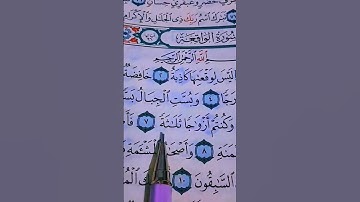 خُضْرٍ وَعَبْقَرِيٍّ حِسَانٍ
تَبَٰرَكَ ٱسْمُ رَبِّكَ ذِى ٱلْجَلَٰلِ وَٱلْإِكْرَامِ
سُورَةُ الْوَاقِعَةِ
ٱللَّهِ ٱلرَّحْمَٰنِ ٱلرَّحِيمِ
لَيْسَ لِوَقْعَتِهَا كَاذِبَةٌ ٢ خَافِضَةٌ
رَجًّا ٤ وَبُسَّتِ ٱلْجِبَالُ بَسًّا
وَكُنتُمْ أَزْوَٰجًا ثَلَٰثَةً ٧ فَأَ
مَنَةِ ٨ وَأَصْحَٰبُ ٱلْمَشْـَٔمَةِ
ٱلسَّٰبِقُونَ ١٠